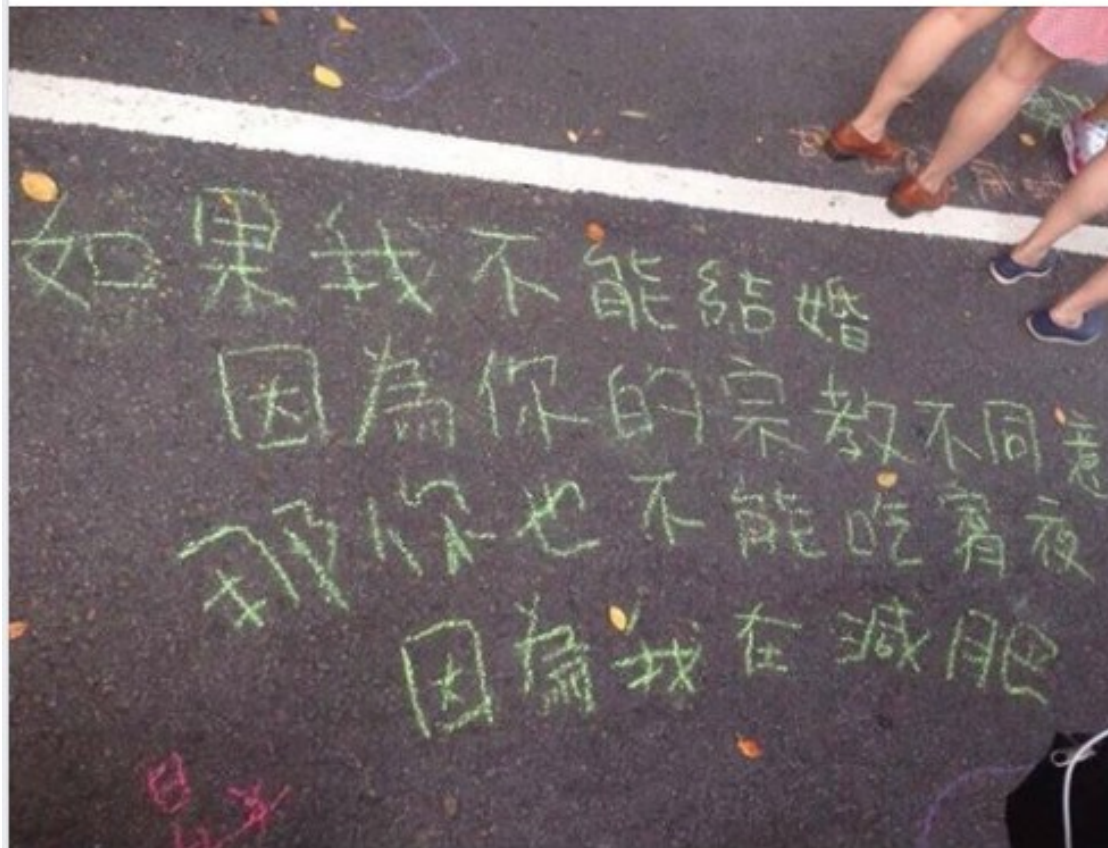 如果我不能結婚
因為你的宗教不同意
那你也不能吃宵夜
因為我在減肥